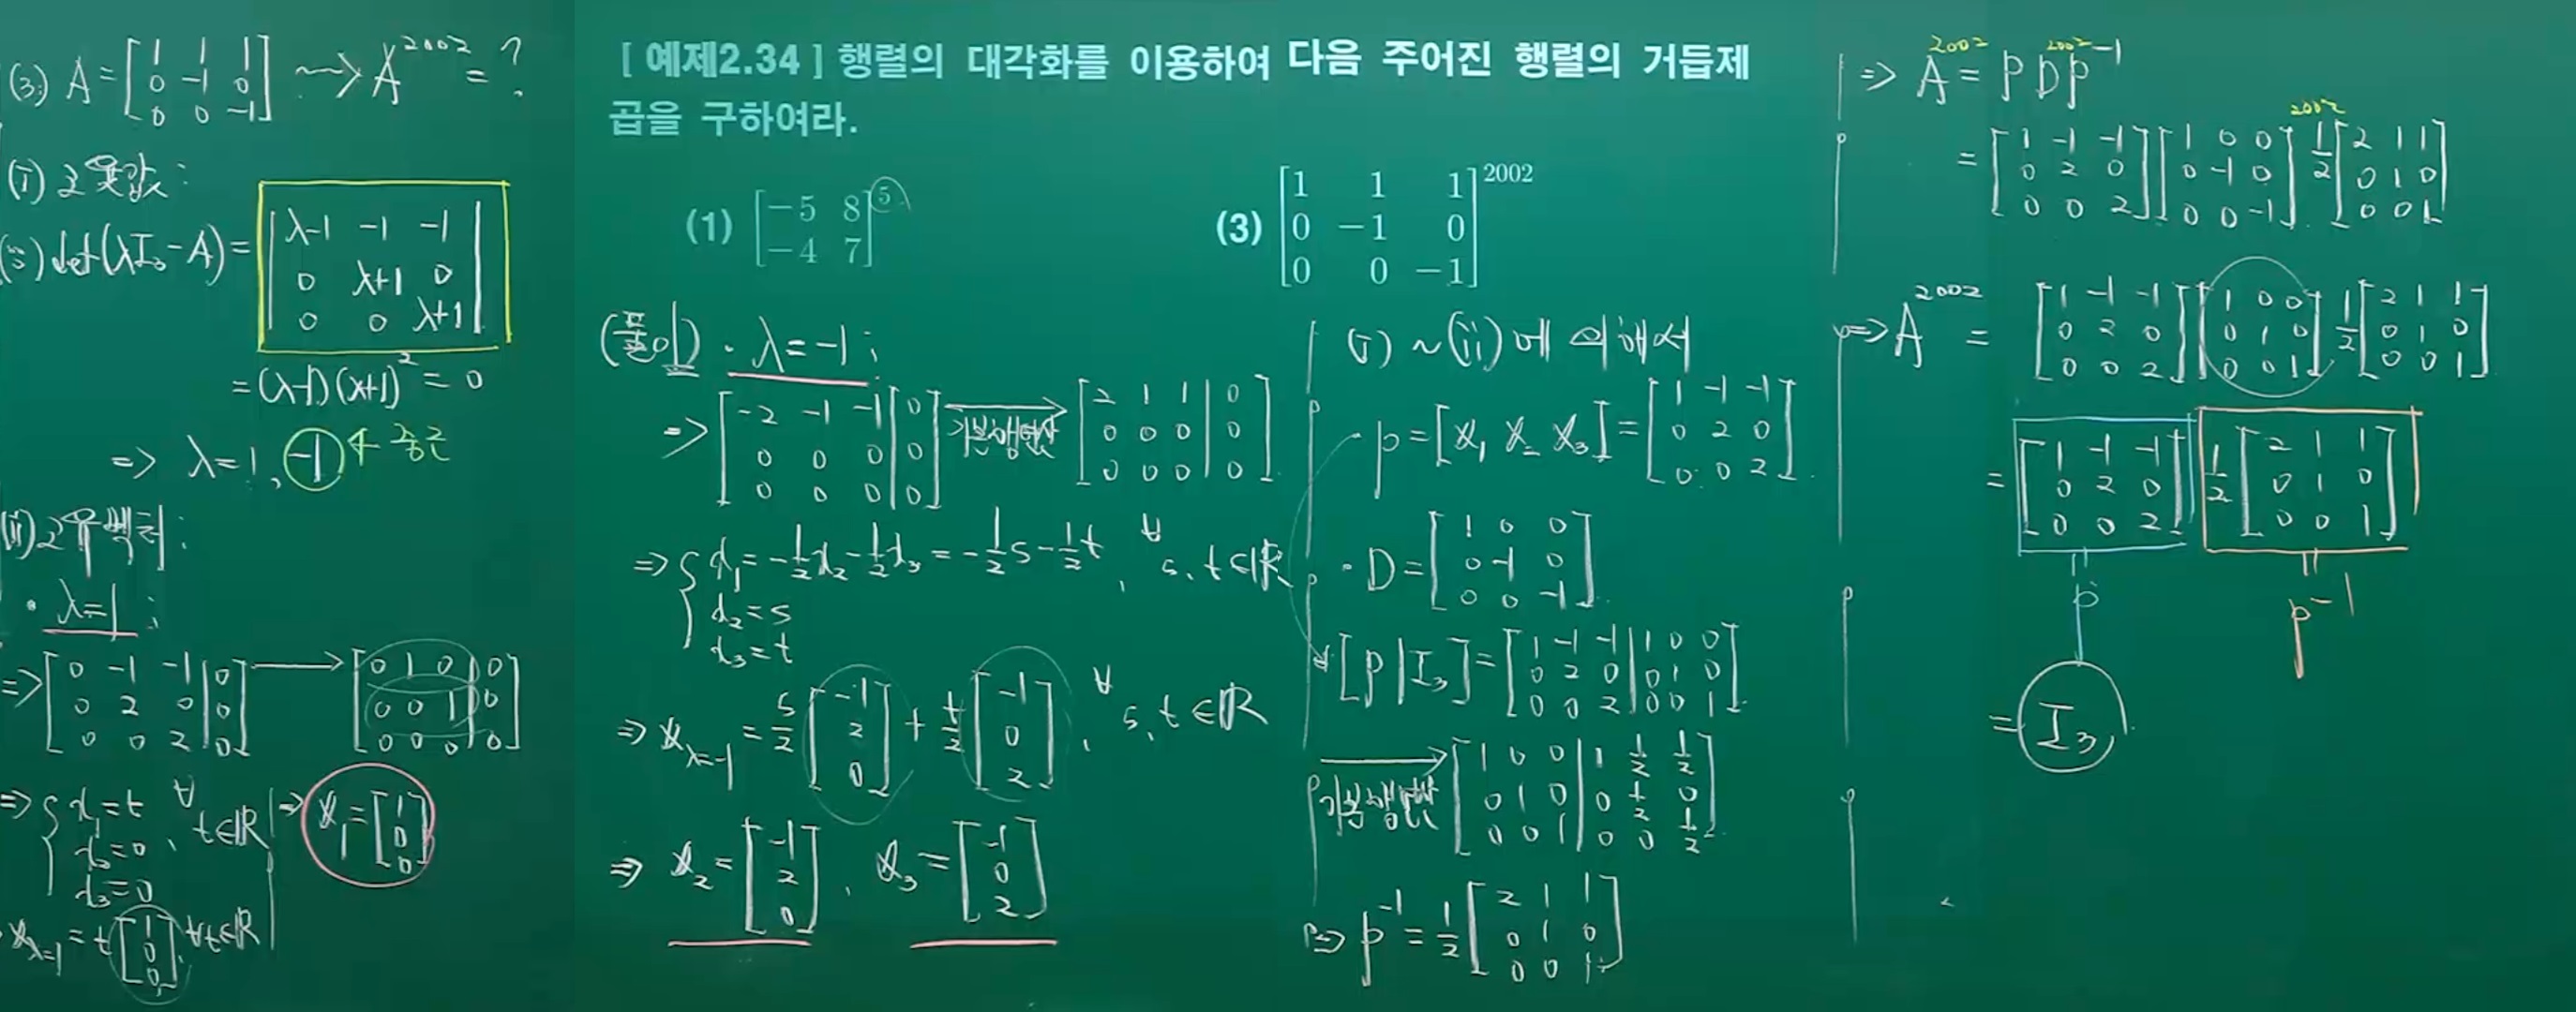 (3) A = [1 1 1; 0 -1 0; 0 0 -1] ~> A^2002 = ?
(i) 고윳값:
(∵) det(λI₃-A) = |λ-1 -1 -1; 0 λ+1 0; 0 0 λ+1|
= (λ-1)(λ+1)² = 0
=> λ=1, -1 ← 중근
(ii) 고유벡터:
· λ=1 ;
=> [0 -1 -1 | 0; 0 2 0 | 0; 0 0 2 | 0] → [0 1 0 | 0; 0 0 1 | 0; 0 0 0 | 0]
=> { x₁=t, x₂=0, x₃=0, ∀t∈ℝ => x₁ = [1; 0; 0]
x_λ=1 = t[1; 0; 0], ∀t∈ℝ
[예제2.34] 행렬의 대각화를 이용하여 다음 주어진 행렬의 거듭제
곱을 구하여라.
(1) [-5 8; -4 7]^5 (3) [1 1 1; 0 -1 0; 0 0 -1]^2002
(풀이) · λ=-1 ;
=> [-2 -1 -1 | 0; 0 0 0 | 0; 0 0 0 | 0] → 기본행연산 [2 1 1 | 0; 0 0 0 | 0; 0 0 0 | 0]
=> { x₁ = -1/2 x₂ - 1/2 x₃ = -1/2 s - 1/2 t, ∀s, t∈ℝ
x₂ = s
x₃ = t
=> x_λ=-1 = s/2 [-1; 2; 0] + t/2 [-1; 0; 2], ∀s, t∈ℝ
=> x₂ = [-1; 2; 0], x₃ = [-1; 0; 2]
(i) ~ (ii)에 의해서
· P = [x₁ x₂ x₃] = [1 -1 -1; 0 2 0; 0 0 2]
· D = [1 0 0; 0 -1 0; 0 0 -1]
[P | I₃] = [1 -1 -1 | 1 0 0; 0 2 0 | 0 1 0; 0 0 2 | 0 0 1]
→ 기본행연산 [1 0 0 | 1 1/2 1/2; 0 1 0 | 0 1/2 0; 0 0 1 | 0 0 1/2]
=> P⁻¹ = 1/2 [2 1 1; 0 1 0; 0 0 1]
=> A^2002 = P D^2002 P⁻¹
= [1 -1 -1; 0 2 0; 0 0 2] [1 0 0; 0 -1 0; 0 0 -1]^2002 1/2 [2 1 1; 0 1 0; 0 0 1]
=> A^2002 = [1 -1 -1; 0 2 0; 0 0 2] [1 0 0; 0 1 0; 0 0 1] 1/2 [2 1 1; 0 1 0; 0 0 1]
= [1 -1 -1; 0 2 0; 0 0 2] 1/2 [2 1 1; 0 1 0; 0 0 1]
P P⁻¹
= I₃